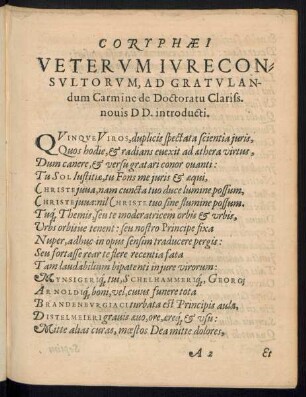 CORYPHÆI
VETERVM IVRECON-
SVLTORVM, AD GRATVLAN-
dum Carmine de Doctoratu Clariss.
nouis DD. introducti.
QVINQVE VIROS, duplicis spectata scientia juris,
Quos hodie, & radians euexit ad æthera virtus,
Dum canere, & versu gratari conor ouanti:
Tu SOL Iustitia, tu Fons me juris & æqui,
CHRISTE juua, nam cuncta tuo duce lumine possum,
CHRISTE juua: nil CHRISTE tuo sine lumine possum.
Tuq́, Themis, seu te moderatricem orbis & vrbis,
Vrbs orbisue tenent: seu nostro Principe fixa
Nuper, adhuc in opus sensim traducere pergis:
Seu fortasse rear te flere recentia fata
Tam laudabilium bipatenti in jure virorum:
MYNSIGERIq́, tui, SCHELHAMMERIq́, GEORGI
ARNOLDIq́, boni, vel, cuius funere tota
BRANDENBVRGIACI turbata est Principis aula,
DISTELMEIERI grauis auo, ore, areq́, & vsu:
Mitte alias curas, mœstos Dea mitte dolores,
A 2
Et